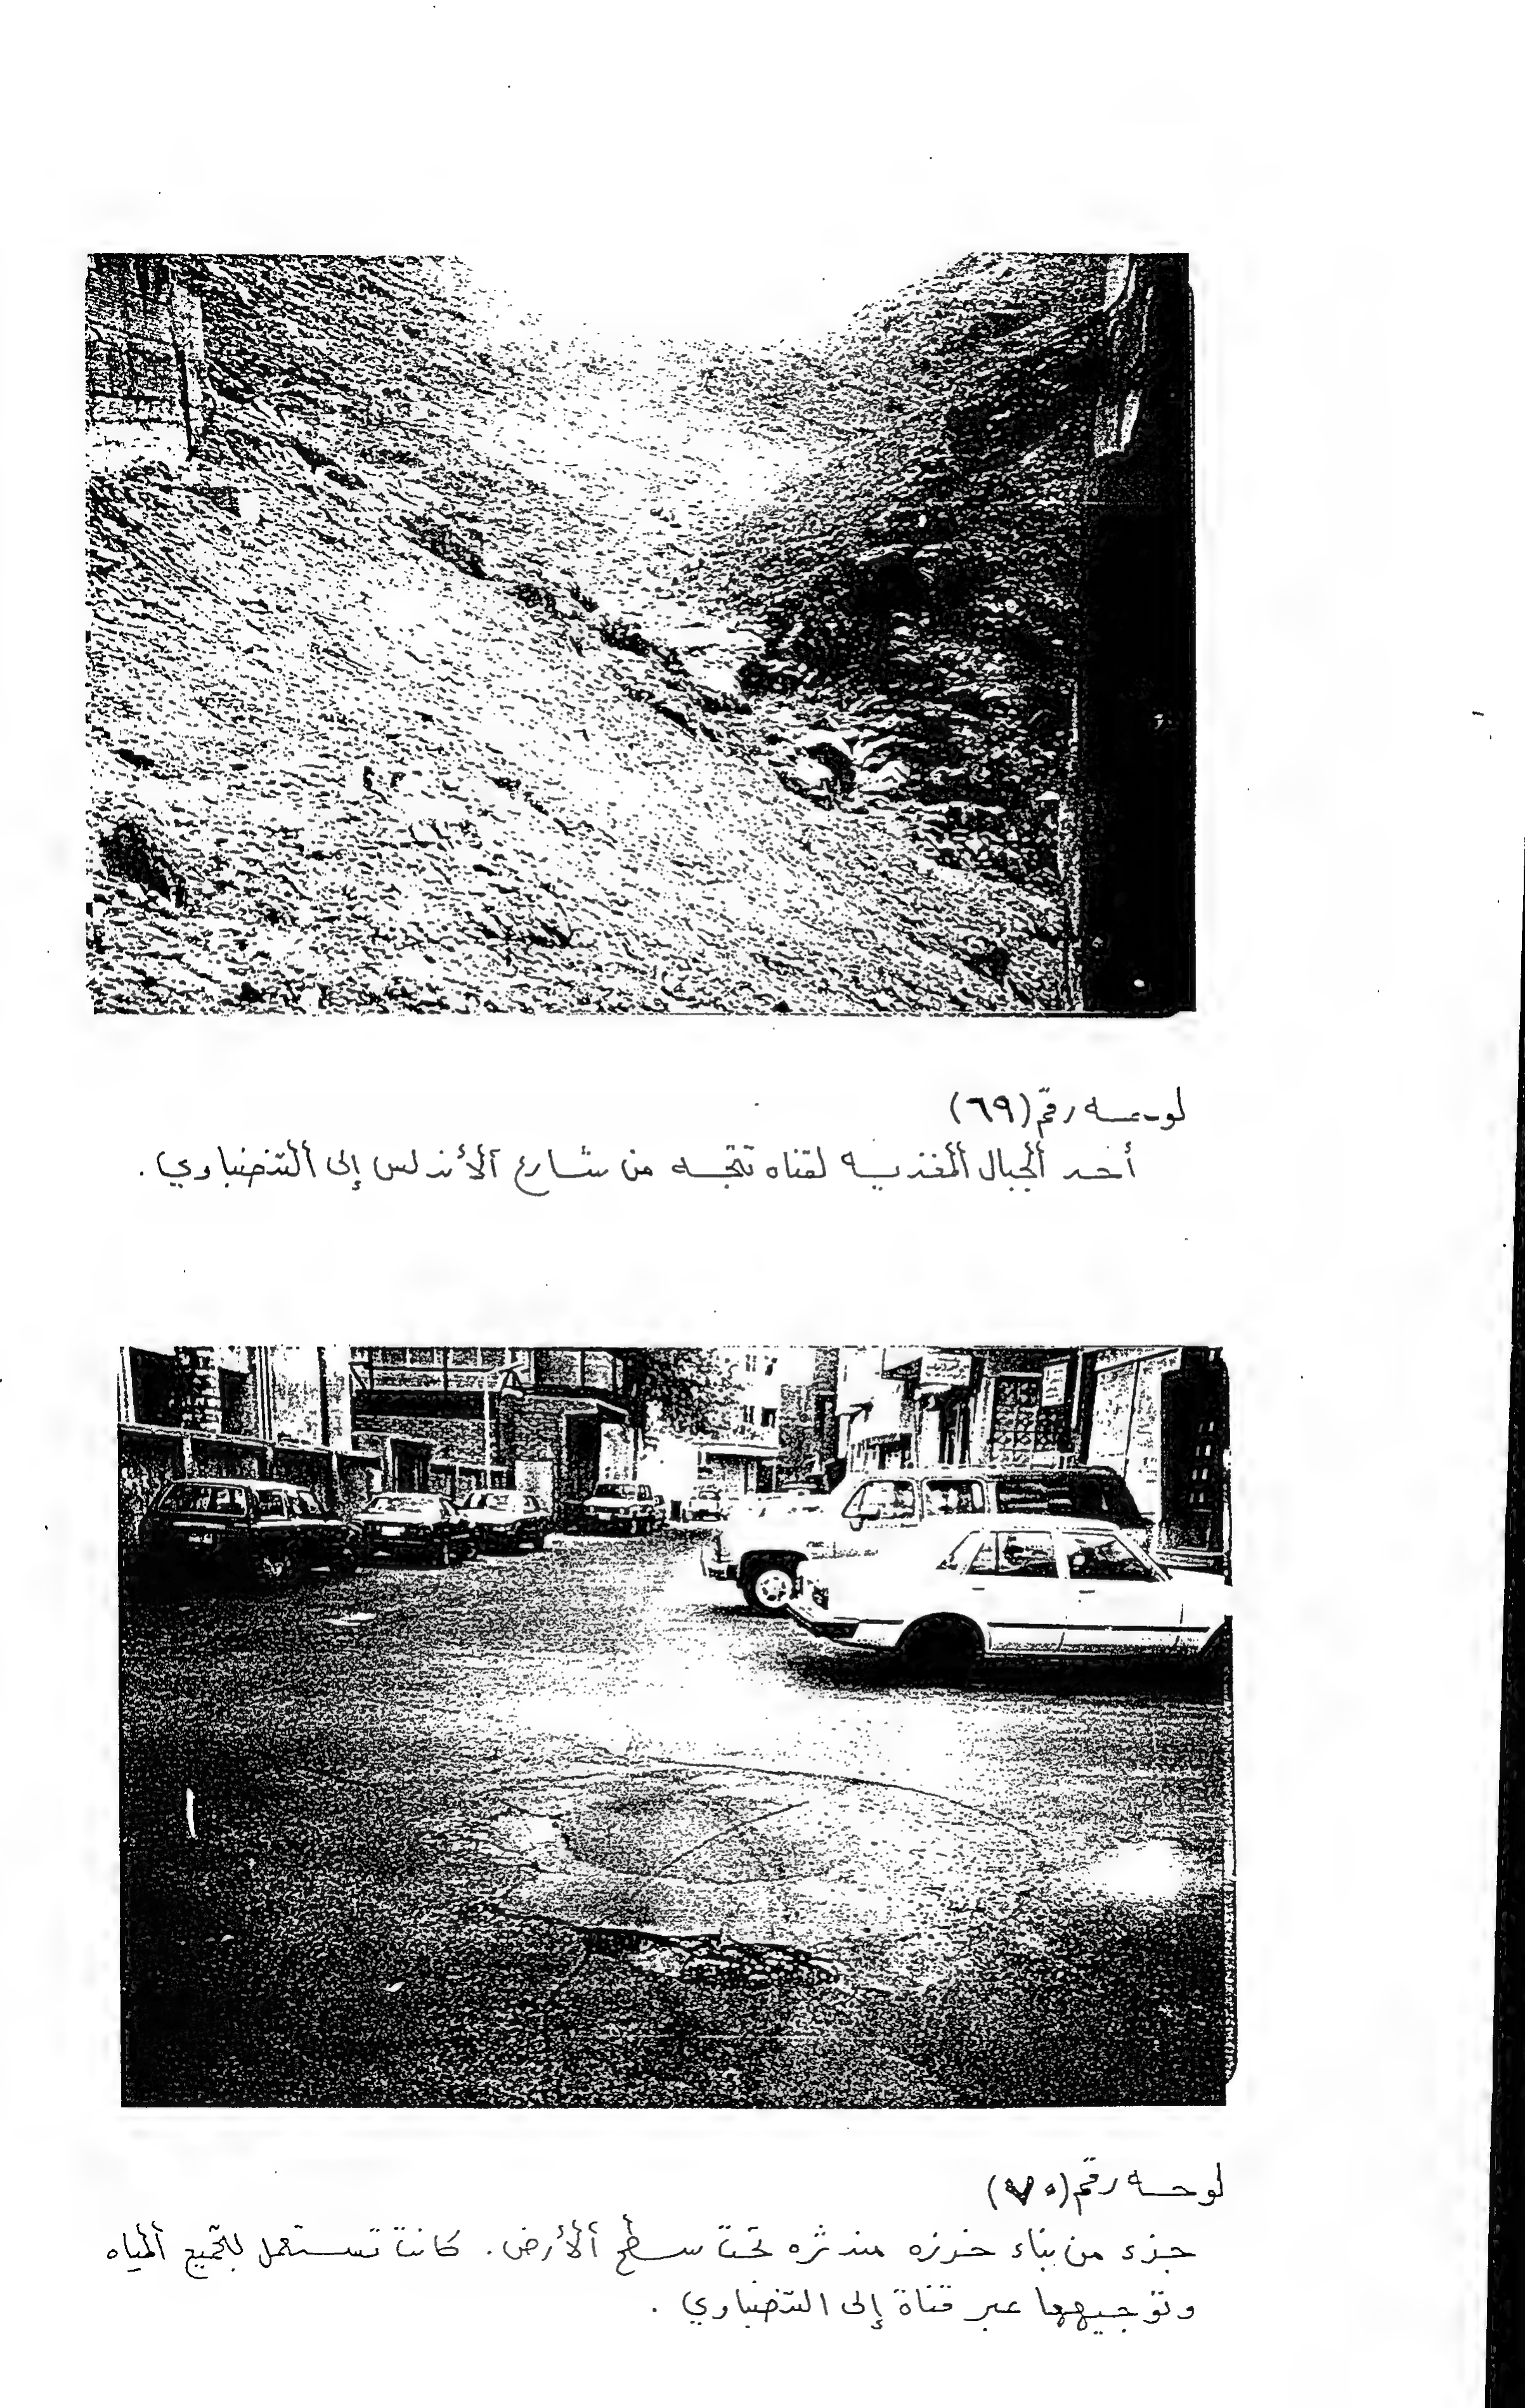 لوحه رقم (٦٩)
أحد الجبال المغذيه لقناه تتجه من شارع الأندلس إلى التنضباوي .
لوحه رقم (٧٠)
جزء من بناء خرزه مندثره تحت سطح الأرض . كانت تستعمل لتجميع المياه
وتوجيهها عبر قناة إلى التنضباوي .